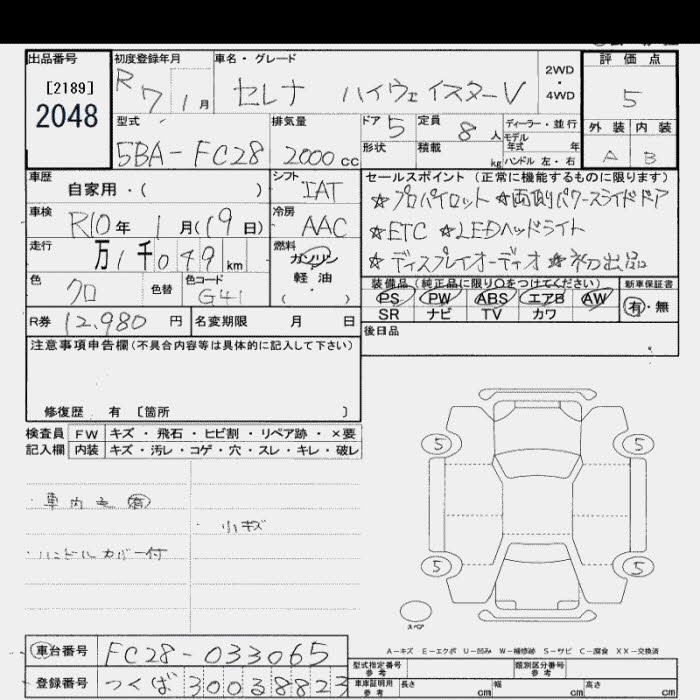 出品番号 初度登録年月 車名・グレード 評価点
[2189] R7 1月 セレナ ハイウェイスターV 2WD・4WD 5
2048 型式 排気量 ドア 5 定員 8人 ディーラー・並行 外装 内装
モデル年式 年
5BA-FC28 2000cc 形状 積載 kg ハンドル 左・右 A B
車歴 自家用・( ) シフト IAT セールスポイント (正常に機能するものに限ります)
☆プロパイロット ☆両側パワースライドドア
車検 R10年 1月(19日) 冷房 AAC ☆ETC ☆LEDヘッドライト
走行 万1千049km 燃料 ガソリン・軽油( ) ☆ディスプレイオーディオ ☆初出品
色 クロ 色替 色コード G41 装備品 (純正品に限り〇をつけてください) 新車保証書
PS PW ABS エアB AW 有・無
SR ナビ TV カワ
R券 12,980円 名変期限 月 日 後日品
注意事項申告欄(不具合内容等は具体的に記入して下さい)
修復歴 有 〔箇所 〕
検査員 FW キズ・飛石・ヒビ割・リペア跡・×要
記入欄 内装 キズ・汚レ・コゲ・穴・スレ・キレ・破レ
5 5
・小キズ
・ハンドルカバー付
5 5
スペア
A-キズ E-エクボ U-凹み W-補修跡 S-サビ C-腐食 XX-交換済
車台番号 FC28-033065 型式指定番号 参考 類別区分番号 参考
登録番号 つくば 300る8823 車庫証明用 参考 長さ cm 幅 cm 高さ cm